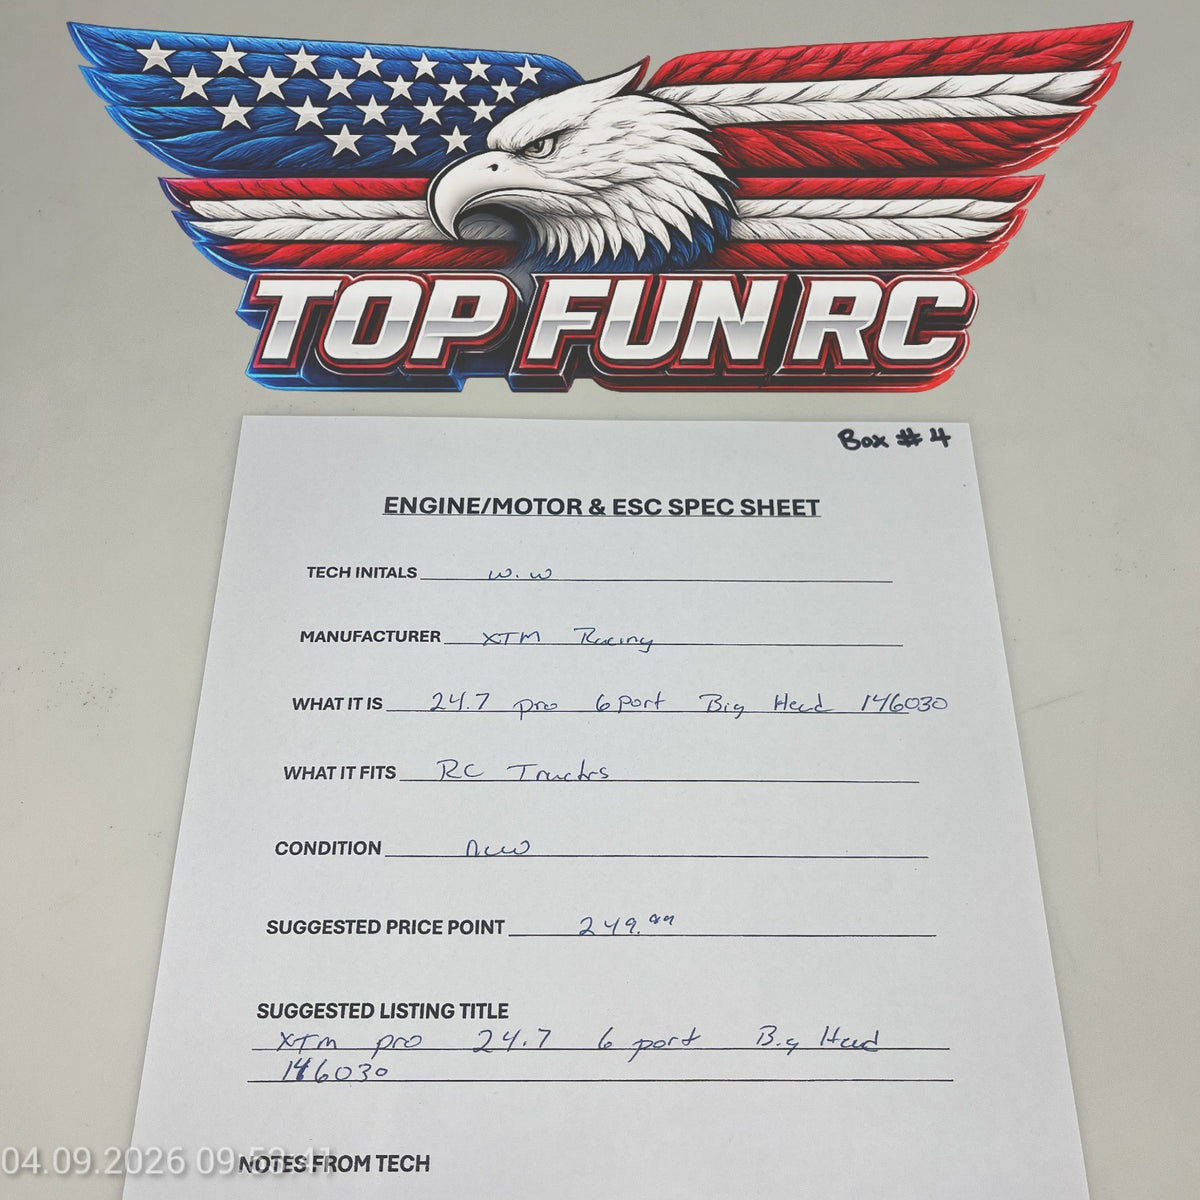 TOP FUN RC
Box # 4
ENGINE/MOTOR & ESC SPEC SHEET
TECH INITALS w.w
MANUFACTURER XTM Racing
WHAT IT IS 24.7 pro 6 port Big Head 146030
WHAT IT FITS RC Trucks
CONDITION new
SUGGESTED PRICE POINT 249.99
SUGGESTED LISTING TITLE
XTM pro 24.7 6 port Big Head
146030
NOTES FROM TECH
04.09.2026